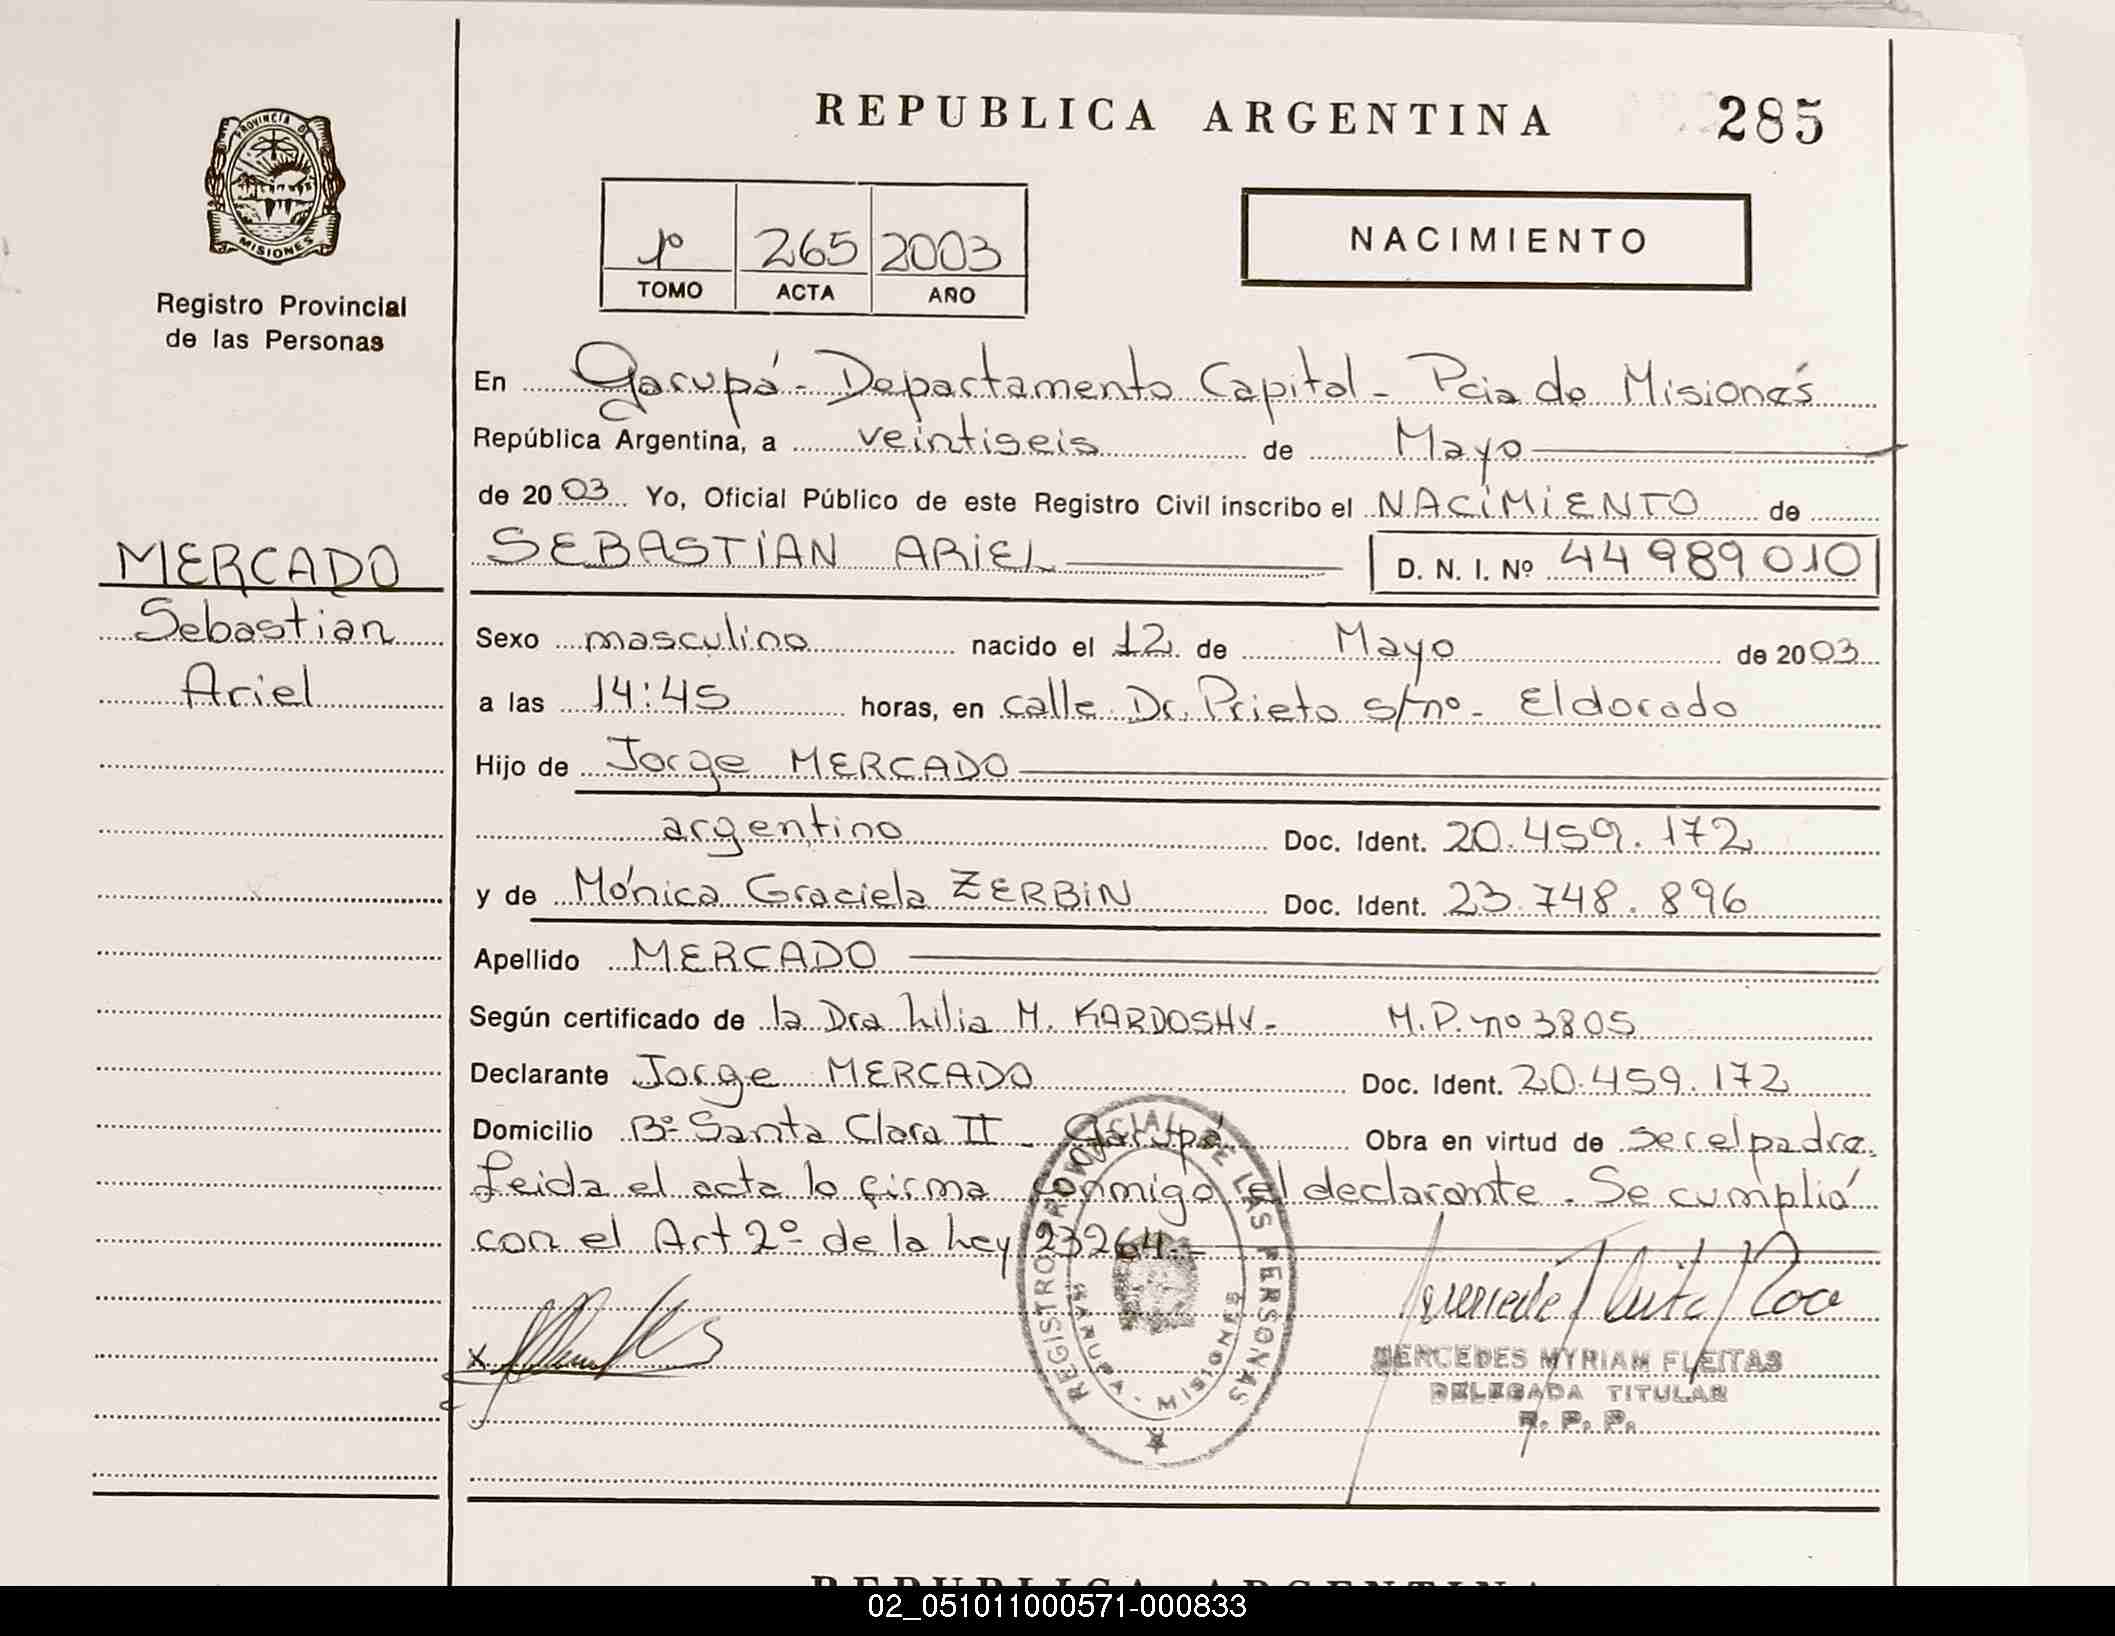 REPUBLICA ARGENTINA
285
PROVINCIA DE
MISIONES
Registro Provincial
de las Personas
1º 265 2003
TOMO ACTA AÑO
NACIMIENTO
En Garupá - Departamento Capital - Pcia de Misiones
República Argentina, a veintiseis de Mayo
de 2003 Yo, Oficial Público de este Registro Civil inscribo el NACIMIENTO de
SEBASTIAN ARIEL D. N. I. Nº 44989010
MERCADO
Sebastian
Ariel
Sexo masculino nacido el 12 de Mayo de 2003
a las 14:45 horas, en calle Dr. Prieto s/nº - Eldorado
Hijo de Jorge MERCADO
argentino Doc. Ident. 20.459.172
y de Mónica Graciela ZERBIN Doc. Ident. 23.748.896
Apellido MERCADO
Según certificado de la Dra Lilia M. KARDOSHY - M.P. nº 3805
Declarante Jorge MERCADO Doc. Ident. 20.459.172
Domicilio Bº Santa Clara II - Garupá Obra en virtud de ser el padre.
Leida el acta lo firma conmigo el declarante. Se cumplió
con el Art 2º de la Ley 23264.-
REGISTRO PROVINCIAL DE LAS PERSONAS
GARUPA - MISIONES
x
MERCEDES MYRIAM FLEITAS
DELEGADA TITULAR
R. P. P.
REPUBLICA ARGENTINA
02_051011000571-000833